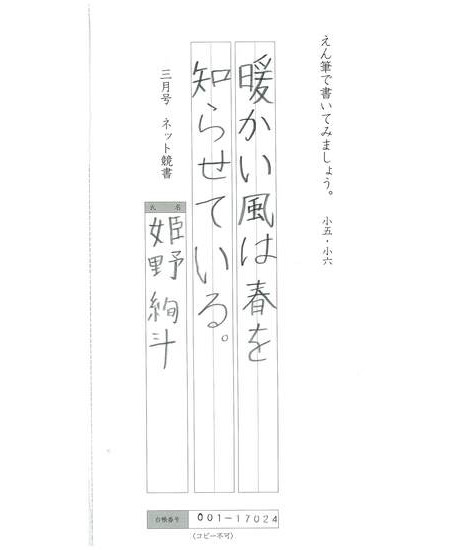 えん筆で書いてみましょう。 小五・小六
暖かい風は春を
知らせている。
三月号 ネット競書
氏名
姫野絢斗
台帳番号 001-17024
(コピー不可)